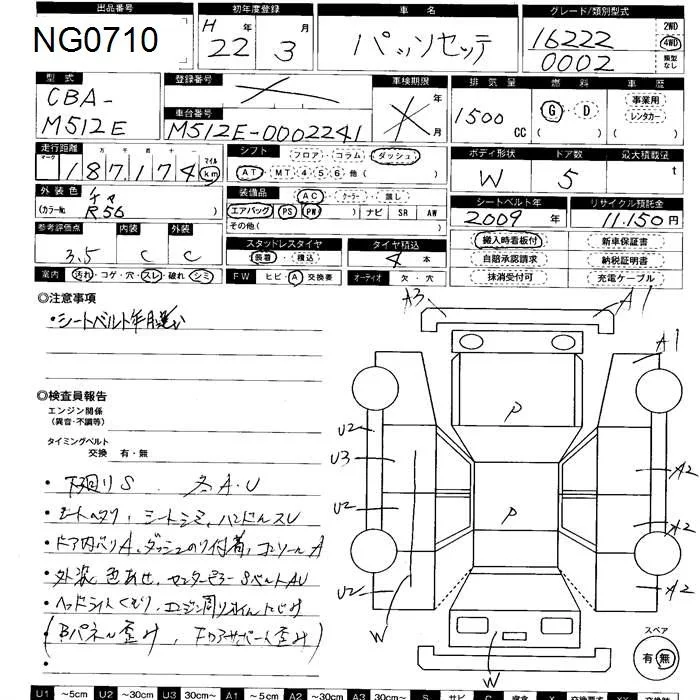 出品番号 初年度登録 車名 グレード/類別型式
NG0710 H 22年 3月 パッソセッテ 16222 2WD
0002 4WD
類型なし
型式 登録番号 車検期限 排気量 燃料 車歴
CBA-
M512E
年 月
1500 CC G・D 事業用
( ) ( ) レンタカー
車台番号
M512E-0002241
走行距離 シフト フロア・コラム・ダッシュ ボディ形状 ドア数 最大積載量
マーク 十 万 千 百 十 一
187174 マイル km AT・MT 4・5・6 他( ) W 5 t
外装色 装備品 AC・クーラー・無し シートベルト年 リサイクル預託金
チャ
(カラーNo. R56 ) エアバッグ PS PW ナビ SR AW 2009年 11,150円
その他( )
参考評価点 内装 外装 スタッドレスタイヤ タイヤ積込 搬入時看板付 新車保証書
3.5 C C 装着・積込 4本 自賠承認請求 納税証明書
室内 汚れ・コゲ・穴・スレ・破れ・シミ FW ヒビ・A・交換要 オーディオ 欠・穴 抹消受付可 充電ケーブル
◎注意事項
・シートベルト年月違い
◎検査員報告
エンジン関係
(異音・不調等)
タイミングベルト
交換 有・無
・下廻りS 各A・U
・シートヘタリ、シートシミ、ハンドルスレ
・ドア内ベリA、ダッシュのり付着、コンソールA
・外装色あせ、センターピラーSベルトAU
・ヘッドライトくもり、エンジン周りオイルにじみ
(Bパネル歪み、
A3 A1
A1
U2
U3
U2
U2
W
P
P
A2
A2
A2
W
スペア
有・無
U1 ～5cm U2 ～30cm U3 30cm～ A1 ～5cm A2 ～30cm A3 30cm～ S サビ C 腐食 X 交換要